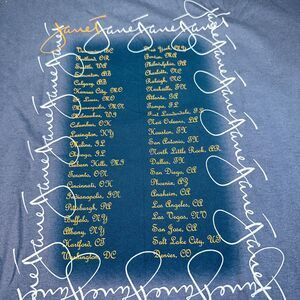 Janet Janet Janet Janet Janet
Portland, OR
Seattle, WA
Edmonton, AB
Calgary, AB
Kansas City, MO
St. Louis, MO
Minneapolis, MN
Milwaukee, WI
Columbus, OH
Lexington, KY
Moline, IL
Chicago, IL
Auburn Hills, MI
Toronto, ON
Cincinnati, OH
Indianapolis, IN
Pittsburgh, PA
Buffalo, NY
Albany, NY
Hartford, CT
Washington, DC
New York, NY
Boston, MA
Philadelphia, PA
Charlotte, NC
Raleigh, NC
Nashville, TN
Atlanta, GA
Tampa, FL
Fort Lauderdale, FL
New Orleans, LA
Houston, TX
San Antonio, TX
North Little Rock, AR
Dallas, TX
San Diego, CA
Phoenix, AZ
Anaheim, CA
Los Angeles, CA
Las Vegas, NV
San Jose, CA
Salt Lake City, UT
Denver, CO